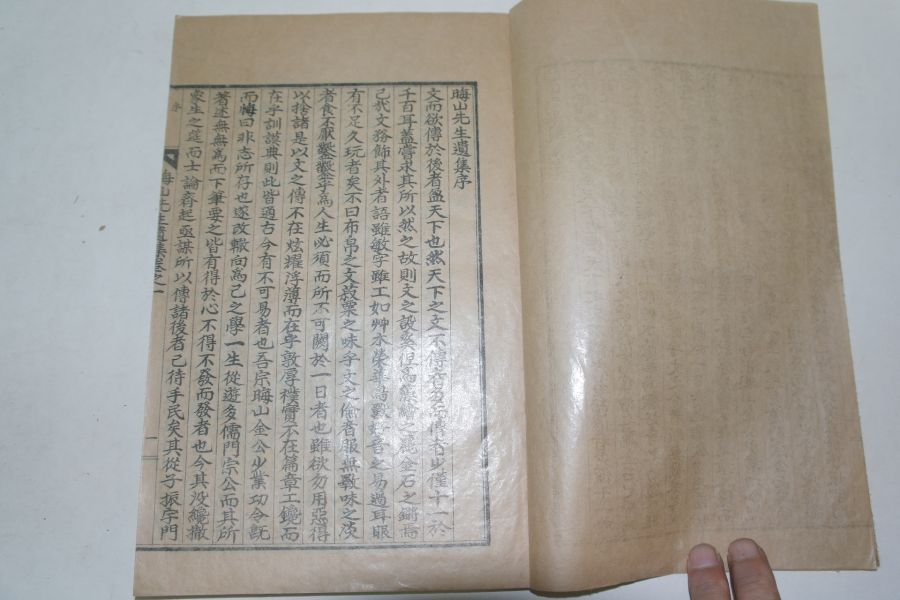 晦山先生遺集序
文而欲傳於後者盈天下也然天下之文不傳者多而傳者少僅十一於
千百耳蓋嘗求其所以然之故則文之設爲黼繪之麗金石之鏘而
已哉文務飾其外者語雖敏字雖工如艸木榮華鳥獸好音之易過耳眼
有不足久玩者矣不曰布帛之文菽粟之味乎文之偷者服無斁味之淡
者食不厭鑿鑿乎爲人生必須而所不可闕於一日者也雖欲勿用惡得
以捨諸是以文之傳不在炫耀浮薄而在乎敦厚樸實不在篇章工鏤而
在乎訓謨典則此皆通古今有不可易者也吾宗晦山金公少業功令旣
而悔曰非志所存也遂改轍向爲己之學一生從遊多儒門宗公而其所
著述無無爲而下筆要之皆有得於心不得不發而發者也今其没纔撤
衆生之筵而士論齊起亟謀所以傳諸後者已待手民矣其從子振宇門
晦山先生遺集卷之一
序
一